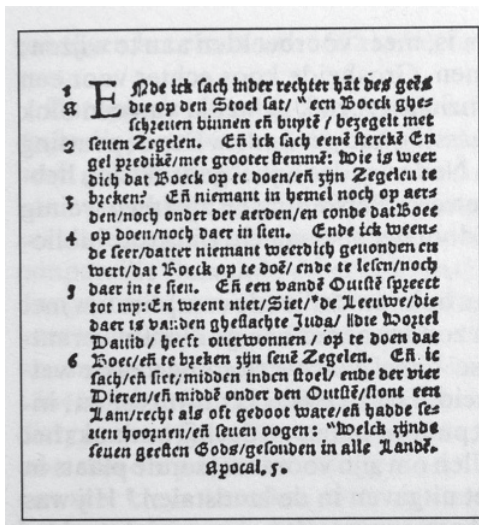 1 ENde ick sach inder rechter hāt des gēs
2 die op den Stoel sat/ een Boeck ghe-
schreuen binnen eñ buytē / bezegelt met
seuen Zegelen. Eñ ick sach eenē sterckē En
gel predikē/met grooter stemmē: Wie is weer
dich dat Boeck op te doen/eñ zijn Zegelen te
3 brekenē? Eñ niemant in hemel noch op aers
den/noch onder der aerden/en conde dat Boec
4 op doen/noch daer in sien. Ende ick ween-
de seer/datter niemant weerdich geuonden en
wert/dat Boeck op te doē/ ende te lesen/noch
5 daer in te sien. Eñ een vandē Outstē spreect
tot my: En weent niet/Siet/*de Leeuwe/die
daer is van den gheslachte Juda/ die Wortel
Dauid/ heeft ouerwonnen / op te doen dat
6 Boec/eñ te breken zijn seuē Zegelen. Eñ ic
sach/eñ siet/midden inden stoel/ ende der vier
Dieren/eñ middē onder den Outstē/stont een
Lam/recht als oft gedoot ware/eñ hadde se-
uen hornen/eñ seuen oogen: "Welck zijnde
seuen geesten Gods/gesonden in alle Landē.
Apocal. 5.